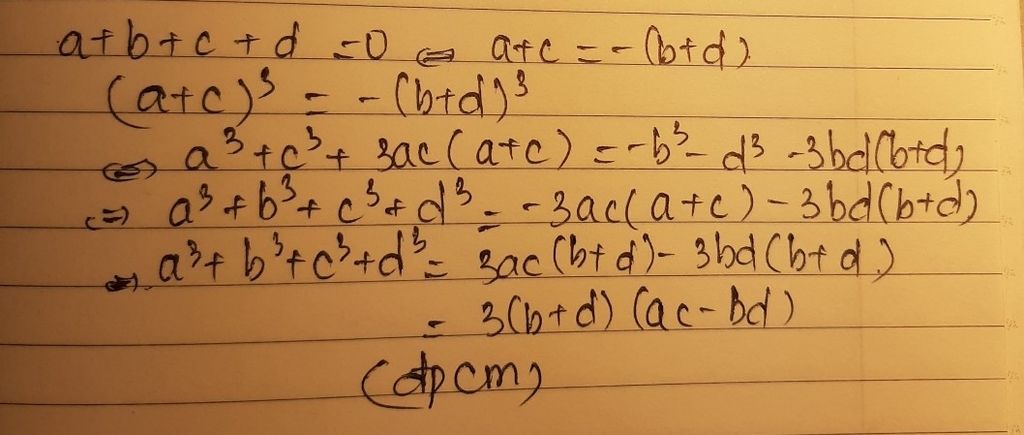 a+b+c+d =0 ⇔ a+c = -(b+d)
(a+c)³ = -(b+d)³
⇔ a³+c³+ 3ac(a+c) = -b³- d³ -3bd(b+d)
⇔ a³+b³+c³+d³ = -3ac(a+c) -3bd(b+d)
⇔ a³+b³+c³+d³ = 3ac(b+d)- 3bd(b+d)
= 3(b+d) (ac-bd)
(dpcm)